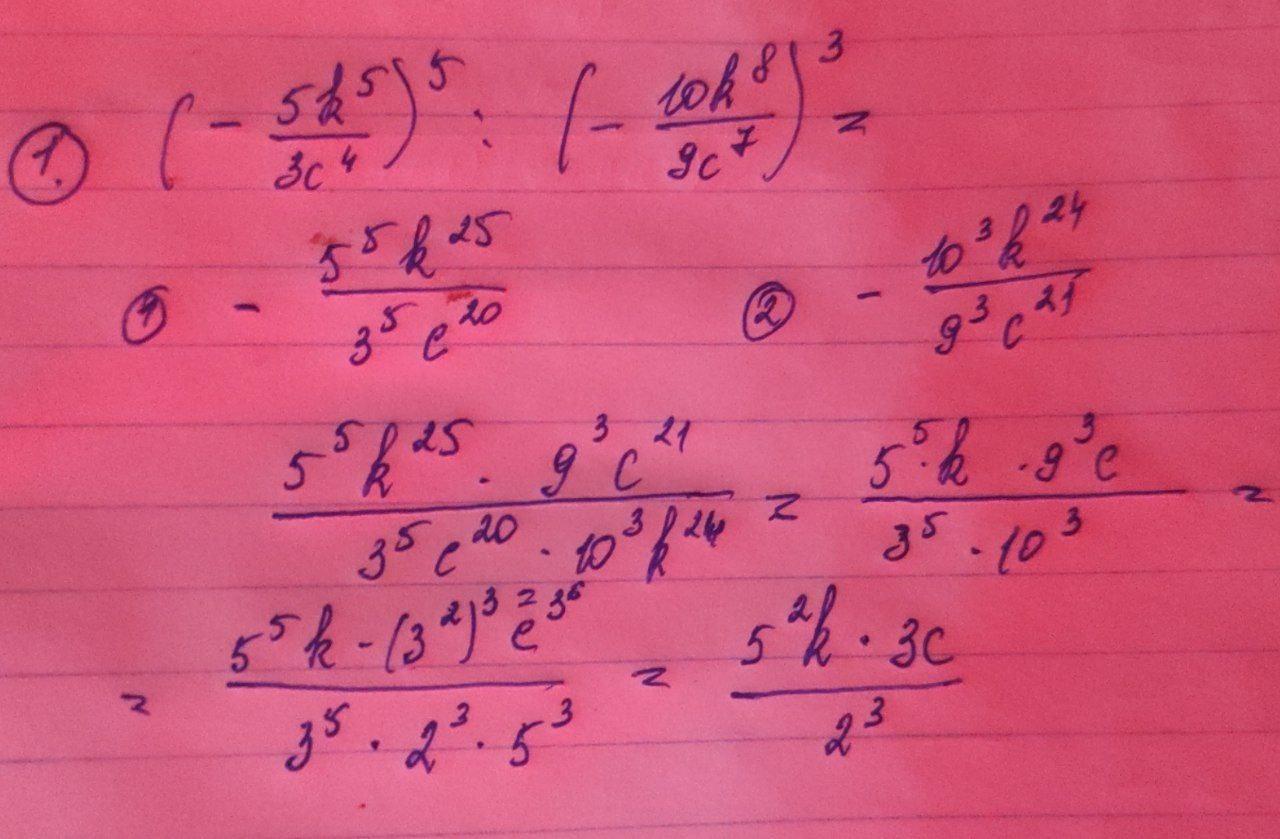 1. (- 5k^5/3c^4)^5 : (- 10k^8/9c^7)^3 =
① - 5^5 k^25/3^5 c^20 ② - 10^3 k^24/9^3 c^21
5^5 k^25 · 9^3 c^21/3^5 c^20 · 10^3 k^24 = 5^5 · k · 9^3 c/3^5 · 10^3 =
= 5^5 k - (3^2)^3 = 3^6 c/3^5 · 2^3 · 5^3 = 5^2 k · 3c/2^3